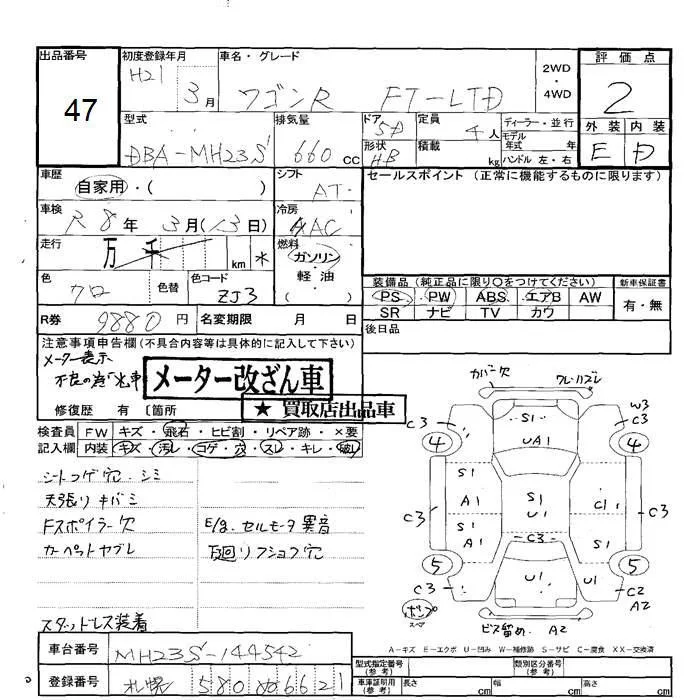 出品番号
47
初度登録年月
H21 3月
車名・グレード
ワゴンR FT-LTD
2WD
・
4WD
評価点
2
外装 内装
E D
型式
DBA-MH23S
排気量
660 CC
ドア
5D
形状
HB
定員
4人
積載
kg
ディーラー・並行
モデル年式 年
ハンドル 左・右
車歴
自家用・( )
シフト
AT
セールスポイント (正常に機能するものに限ります)
車検
R8年3月(13日)
冷房
AAC
走行
万 千 km
燃料
ガソリン・軽油
( )
色
クロ
色替
色コード
ZJ3
装備品 (純正品に限り○をつけてください)
PS PW ABS エアB AW
SR ナビ TV カワ
新車保証書
有・無
R券
9880円
名変期限 月 日
後日品
注意事項申告欄(不具合内容等は具体的に記入して下さい)
メーター表示
メーター改ざん車
修復歴 有 〔箇所
★ 買取店出品車
検査員記入欄
FW キズ・飛石・ヒビ割・リペア跡・×要
内装 キズ・汚レ・コゲ・穴・スレ・キレ・破レ
シートコゲ穴・シミ
天張りキバミ
Fスポイラー欠
E/g・セルモータ異音
カーペットヤブレ
スタットレス装着
カバー欠
C3 S1 W3 C3
4 UA1 4
S1
A1 S1 C1
C3 U1 C3
S1
A1 C3 S1
5 U1 U1 5
C3 C2
A2
スペア
ビス留め A2
A-キズ E-エクボ U-凹み W-補修跡 S-サビ C-腐食 XX-交換済
車台番号
MH23S-144542
登録番号
札幌 580 ぬ 6621
型式指定番号(参考)
類別区分番号(参考)
車庫証明用(参考)
長さ cm 幅 cm 高さ cm